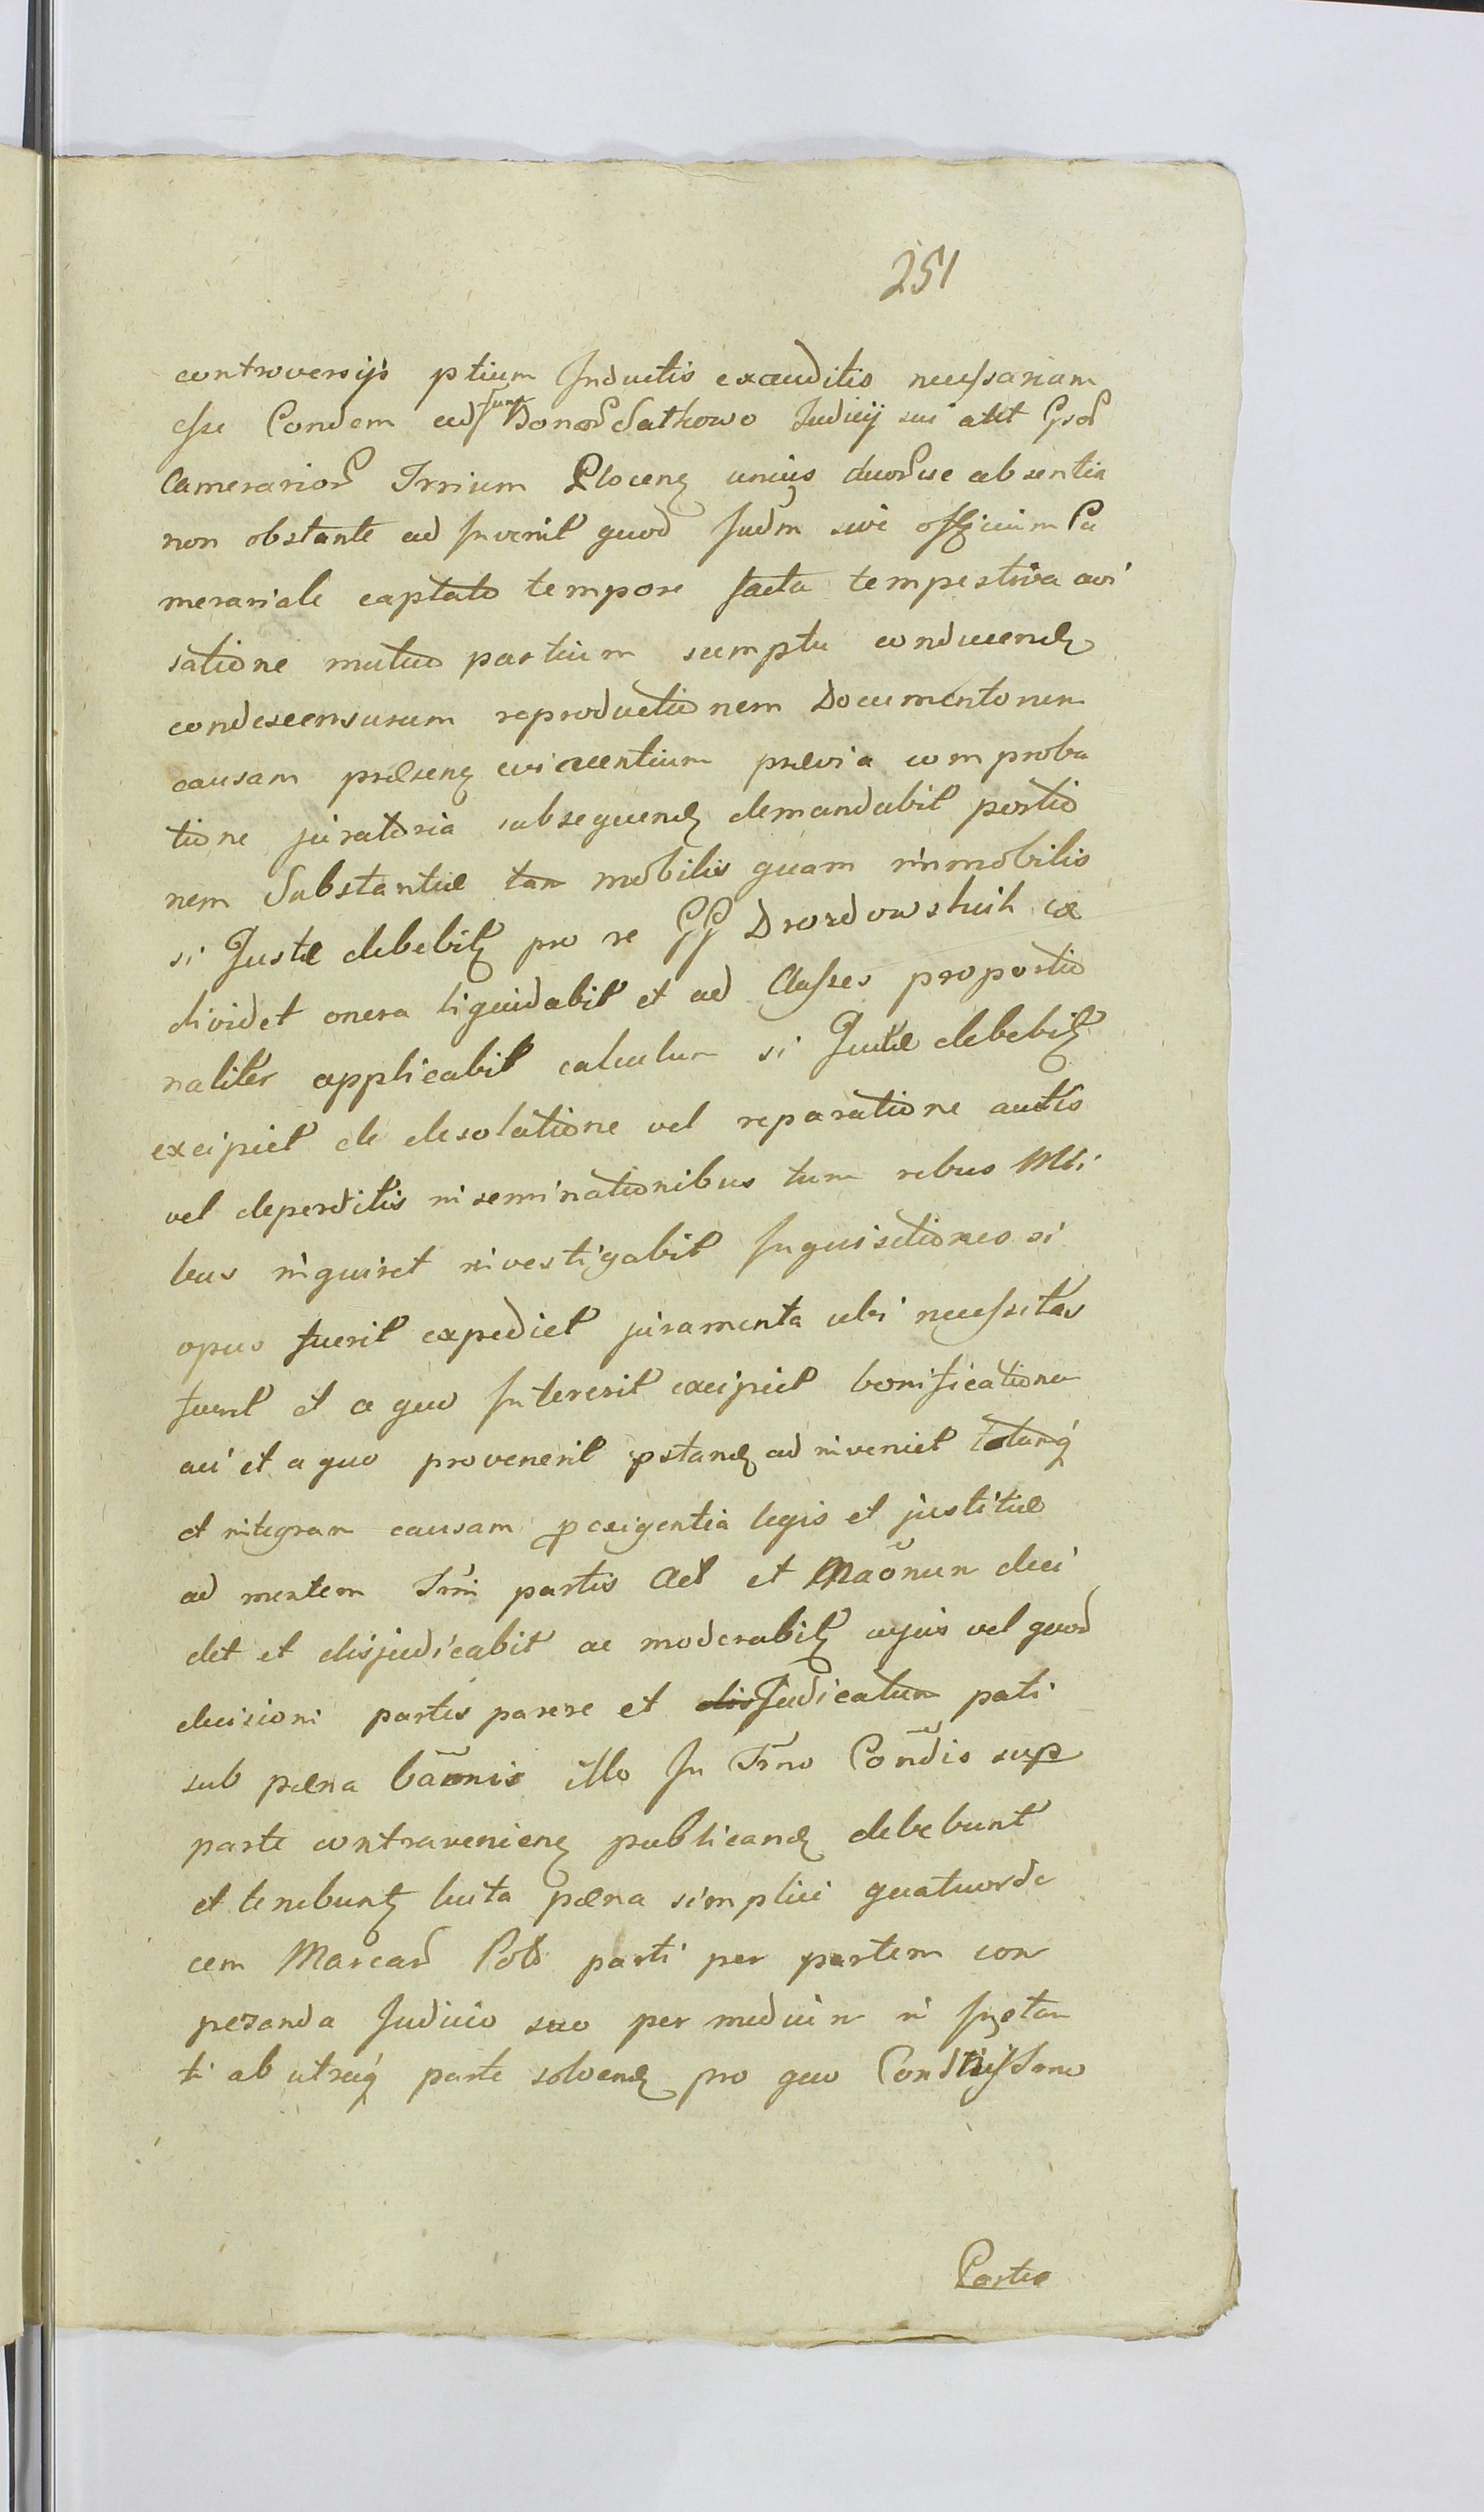 251
controversijs ptium Inductis exauditis necessariam
esse Condem ad funm Bonor Satkowo Judicij sui att Gsor
Camerarior Trrium Plocens unius duorve absentia
non obstante ad Invenit quod Judm sive officium Ca
merariale captato tempore facta tempestiva avi
satione mutuo partium sumptu conducend
condescensurum reproductionem Documentorum
causam præsens evincentium prævia comproba
tione juratoria subsequend demandabit portio
nem Substantiæ tam mobilis quam immobilis
si Juste debebit pro re GG Drozdowskich ex
dividet onera liquidabit et ad Classes proportio
naliter applicabit calculum si Juste debebit
excipiet de desolatione vel reparatione auctis
vel deperditis inseminationibus tum rebus Mbi
bus inquiret investigabit Inquisitiones si
opus fuerit expediet juramenta ubi necessitas
fuerit et a quo Intererit excipiet bonificationem
cui et a quo provenerit pstand ad inveniet totamq
et integram causam p exigentia legis et justitiæ
ad mentem Trmi partis Act et Maonum deci
det et disjudicabit ac moderabit cujus vel quod
decisioni partes parere et disJudicatum pati
sub pæna bannis illo In Trno Condis sup
parte contraveniens publicand debebunt
et tenebunt luita pæna simplici quatuorde
cem Marcar Pol parti per partem com
pezanda Judicio suo per medium in Instan
ti ab utraq parte solvend pro quo
Partes